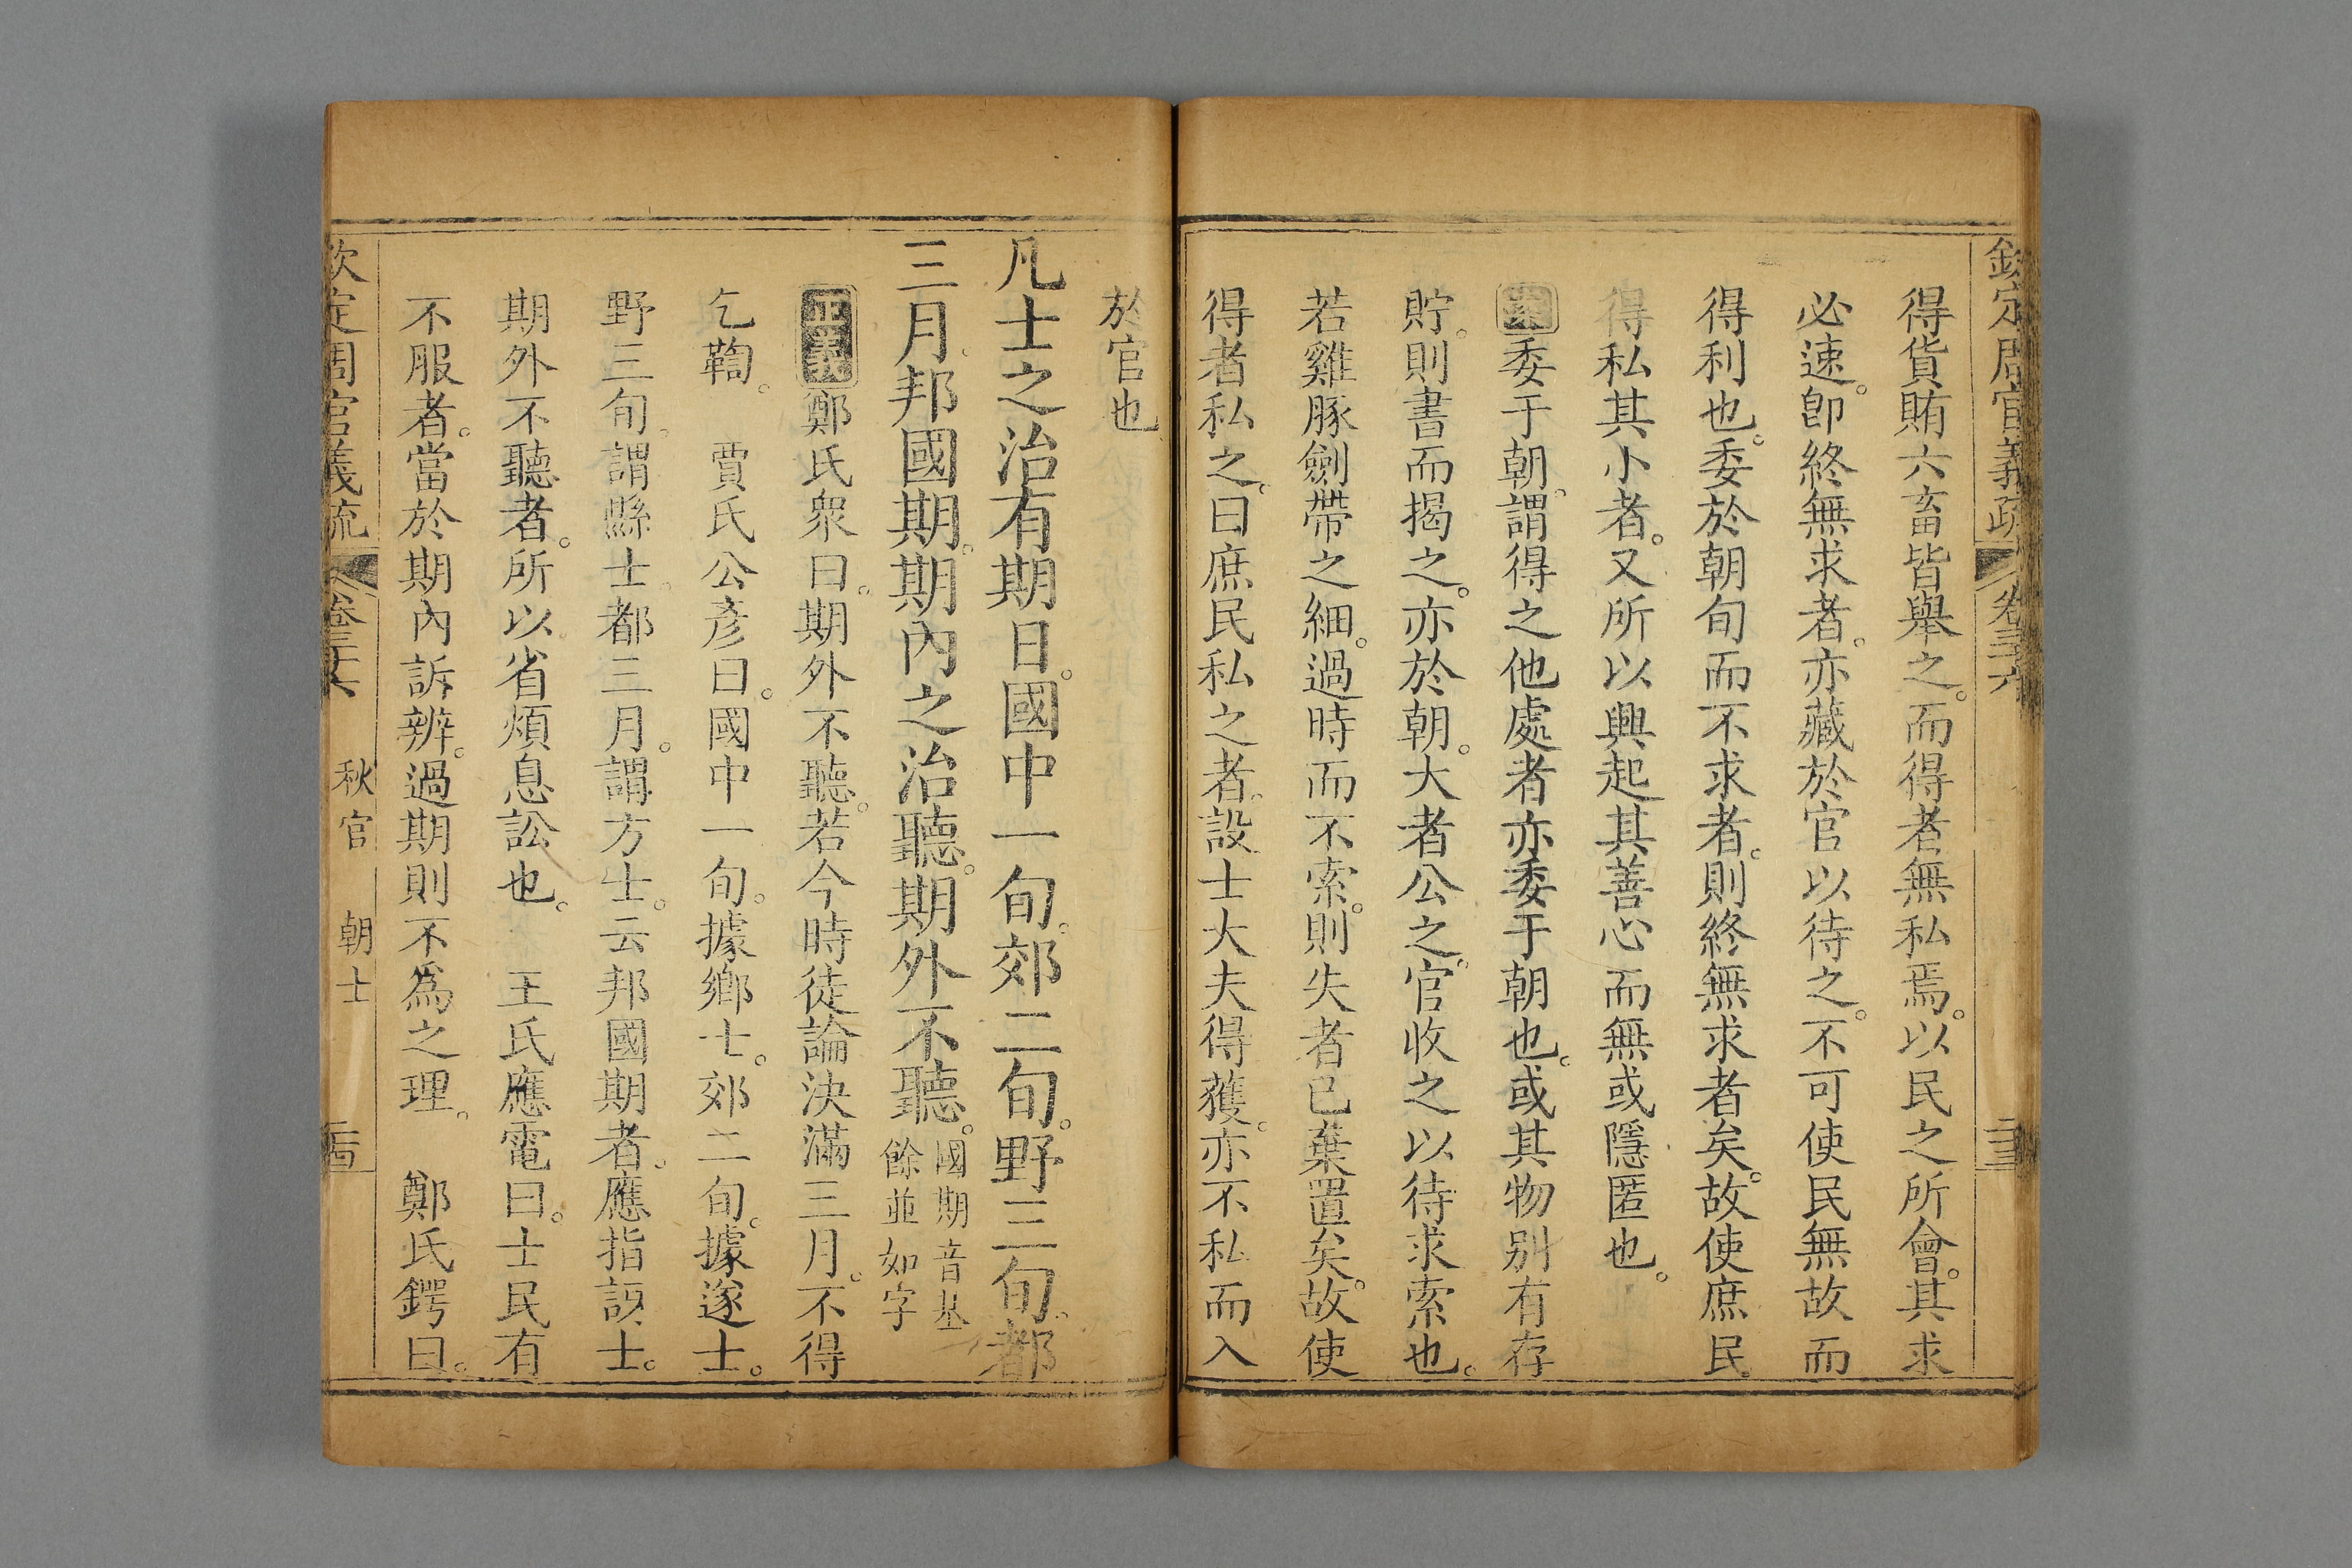 欽定周官義疏 卷三十六 三
得貨賄六畜皆舉之。而得者無私焉。以民之所會。其求
必速。卽終無求者。亦藏於官以待之。不可使民無故而
得利也。委於朝旬而不求者。則終無求者矣。故使庶民
得私其小者。又所以興起其善心而無或隱匿也。
案委于朝。謂得之他處者亦委于朝也。或其物別有存
貯。則書而揭之。亦於朝。大者公之。官收之以待求索也。
若雞豚劍帶之細。過時而不索。則失者已棄置矣。故使
得者私之。曰庶民私之者。設士大夫得獲。亦不私而入
於官也
凡士之治有期日。國中一旬。郊二旬。野三旬。都
三月。邦國期。期內之治聽。期外不聽。國期音基
餘並如字
正義鄭氏衆曰。期外不聽。若今時徒論決滿三月。不得
乞鞫。 賈氏公彥曰。國中一旬。據鄉士。郊二旬。據遂士。
野三旬。謂縣士。都三月。謂方士。云邦國期者。應指訝士。
期外不聽者。所以省煩息訟也。 王氏應電曰。士民有
不服者。當於期內訴辨。過期則不爲之理。 鄭氏鍔曰。
欽定周官義疏 卷三十六 秋官 朝士